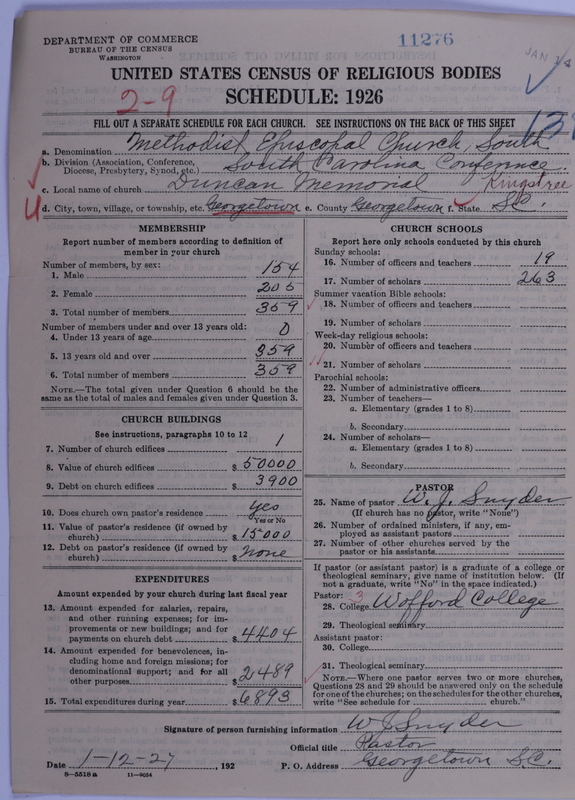 DEPARTMENT OF COMMERCE
BUREAU OF THE CENSUS
WASHINGTON
11276
JAN
UNITED STATES CENSUS OF RELIGIOUS BODIES
2-9
SCHEDULE: 1926
FILL OUT A SEPARATE SCHEDULE FOR EACH CHURCH. SEE INSTRUCTIONS ON THE BACK OF THIS SHEET
a. Denomination Methodist Episcopal Church, South
b. Division (Association, Conference, Diocese, Presbytery, Synod, etc.) South Carolina Conference
c. Local name of church Duncan Memorial Kingstree
d. City, town, village, or township, etc. Georgetown e. County Georgetown f. State S.C.
MEMBERSHIP
Report number of members according to definition of
member in your church
Number of members, by sex:
1. Male 154
2. Female 205
3. Total number of members 359
Number of members under and over 13 years old:
4. Under 13 years of age 0
5. 13 years old and over 359
6. Total number of members 359
NOTE.—The total given under Question 6 should be
same as the total of males and females given under Question 3.
CHURCH BUILDINGS
See instructions, paragraphs 10 to 12
7. Number of church edifices 1
8. Value of church edifices $ 50000
9. Debt on church edifices $ 3900
10. Does church own pastor's residence yes
Yes or No
11. Value of pastor's residence (if owned by
church) $ 15000
12. Debt on pastor's residence (if owned by
church) $ none
EXPENDITURES
Amount expended by your church during last fiscal year
13. Amount expended for salaries, repairs,
and other running expenses; for im-
provements or new buildings; and for
payments on church debt $ 4404
14. Amount expended for benevolences, in-
cluding home and foreign missions; for
denominational support; and for all
other purposes $ 2489
15. Total expenditures during year $ 6893
CHURCH SCHOOLS
Report here only schools conducted by this church
Sunday schools:
16. Number of officers and teachers 19
17. Number of scholars 263
Summer vacation Bible schools:
18. Number of officers and teachers
19. Number of scholars
Week-day religious schools:
20. Number of officers and teachers
21. Number of scholars
Parochial schools:
22. Number of administrative officers
23. Number of teachers—
a. Elementary (grades 1 to 8)
b. Secondary
24. Number of scholars—
a. Elementary (grades 1 to 8)
b. Secondary
PASTOR
25. Name of pastor W. J. Snyder
(If church has no pastor, write "None")
26. Number of ordained ministers, if any, em-
ployed as assistant pastors
27. Number of other churches served by the
pastor or his assistants
If pastor (or assistant pastor) is a graduate of a college or
theological seminary, give name of institution below. (If
not a graduate, write "No" in the space indicated.)
Pastor: 3
28. College Wofford College
29. Theological seminary
Assistant pastor:
30. College
31. Theological seminary
NOTE.—Where one pastor serves two or more churches,
Questions 28 and 29 should be answered only on the schedule
for one of the churches; on the schedules for the other churches,
write "See schedule for church."
Signature of person furnishing information W J Snyder
Official title Pastor
Date 1-12-27, 192 P. O. Address Georgetown S.C.
8-5518 a 11-9054